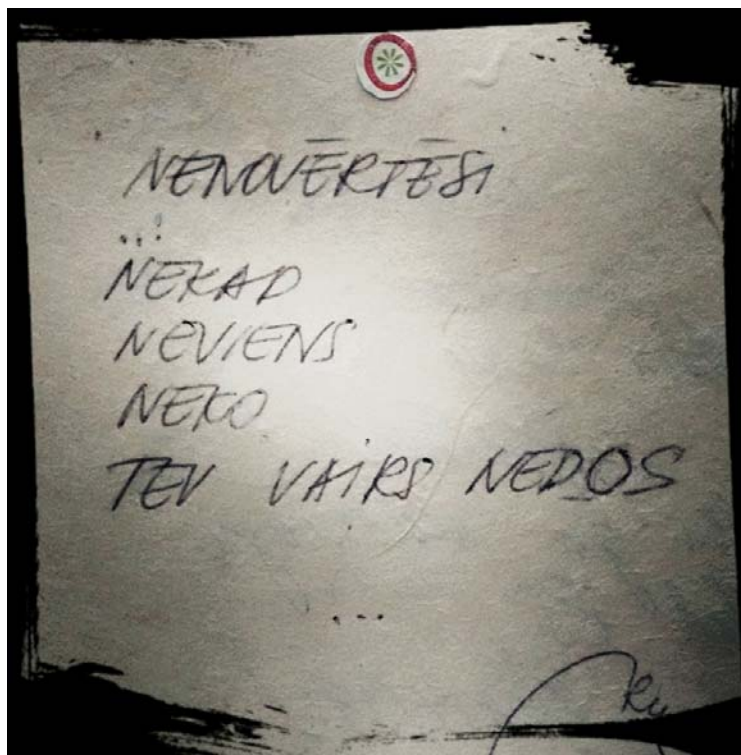 NENOVĒRTĒSI
...!
NEKAD
NEVIENS
NEKO
TEV VAIRS NEDOS
...